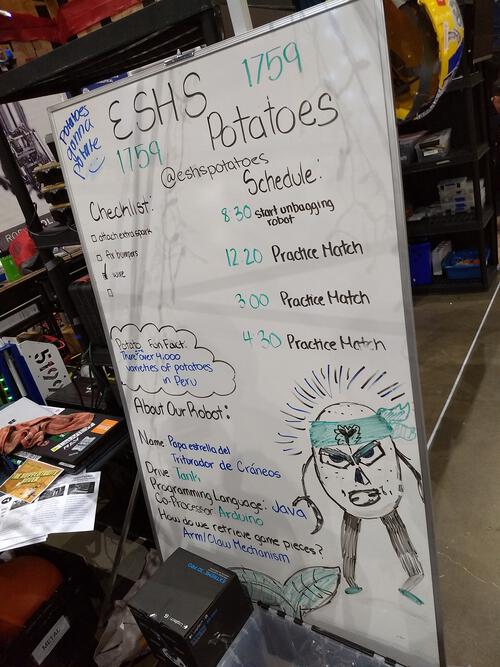 potatoes
gonna
potate
ESHS
1759
Potatoes
1759
@eshspotatoes
Checklist:
attach extra spark
fix bumpers
wire
Schedule:
8:30 start unbagging
robot
12:20 Practice Match
3:00 Practice Match
4:30 Practice Match
Potato Fun Fact:
There over 4,000
varieties of potatoes
in Peru
About Our Robot:
Name Papa estrella del
Triturador de Cráneos
Drive Tank
Programming Language: Java
Co-Processor Arduino
How do we retrieve game pieces?
Arm/Claw Mechanism
5199
METAL